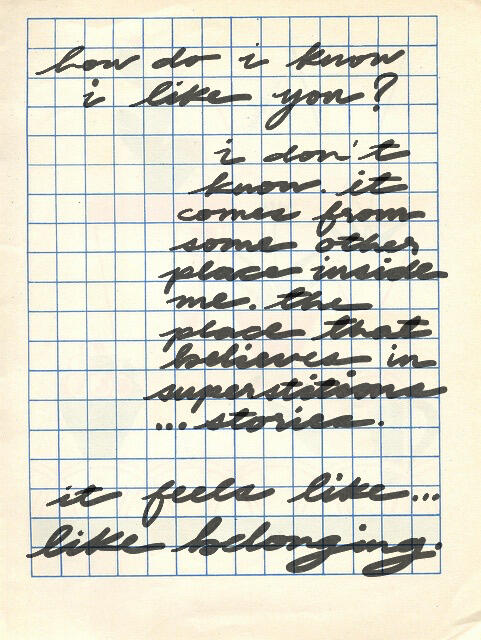 how do i know
i like you?
i don't
know. it
comes from
some other
place inside
me. the
place that
believes in
superstitions
... stories.
it feels like...
like belonging.